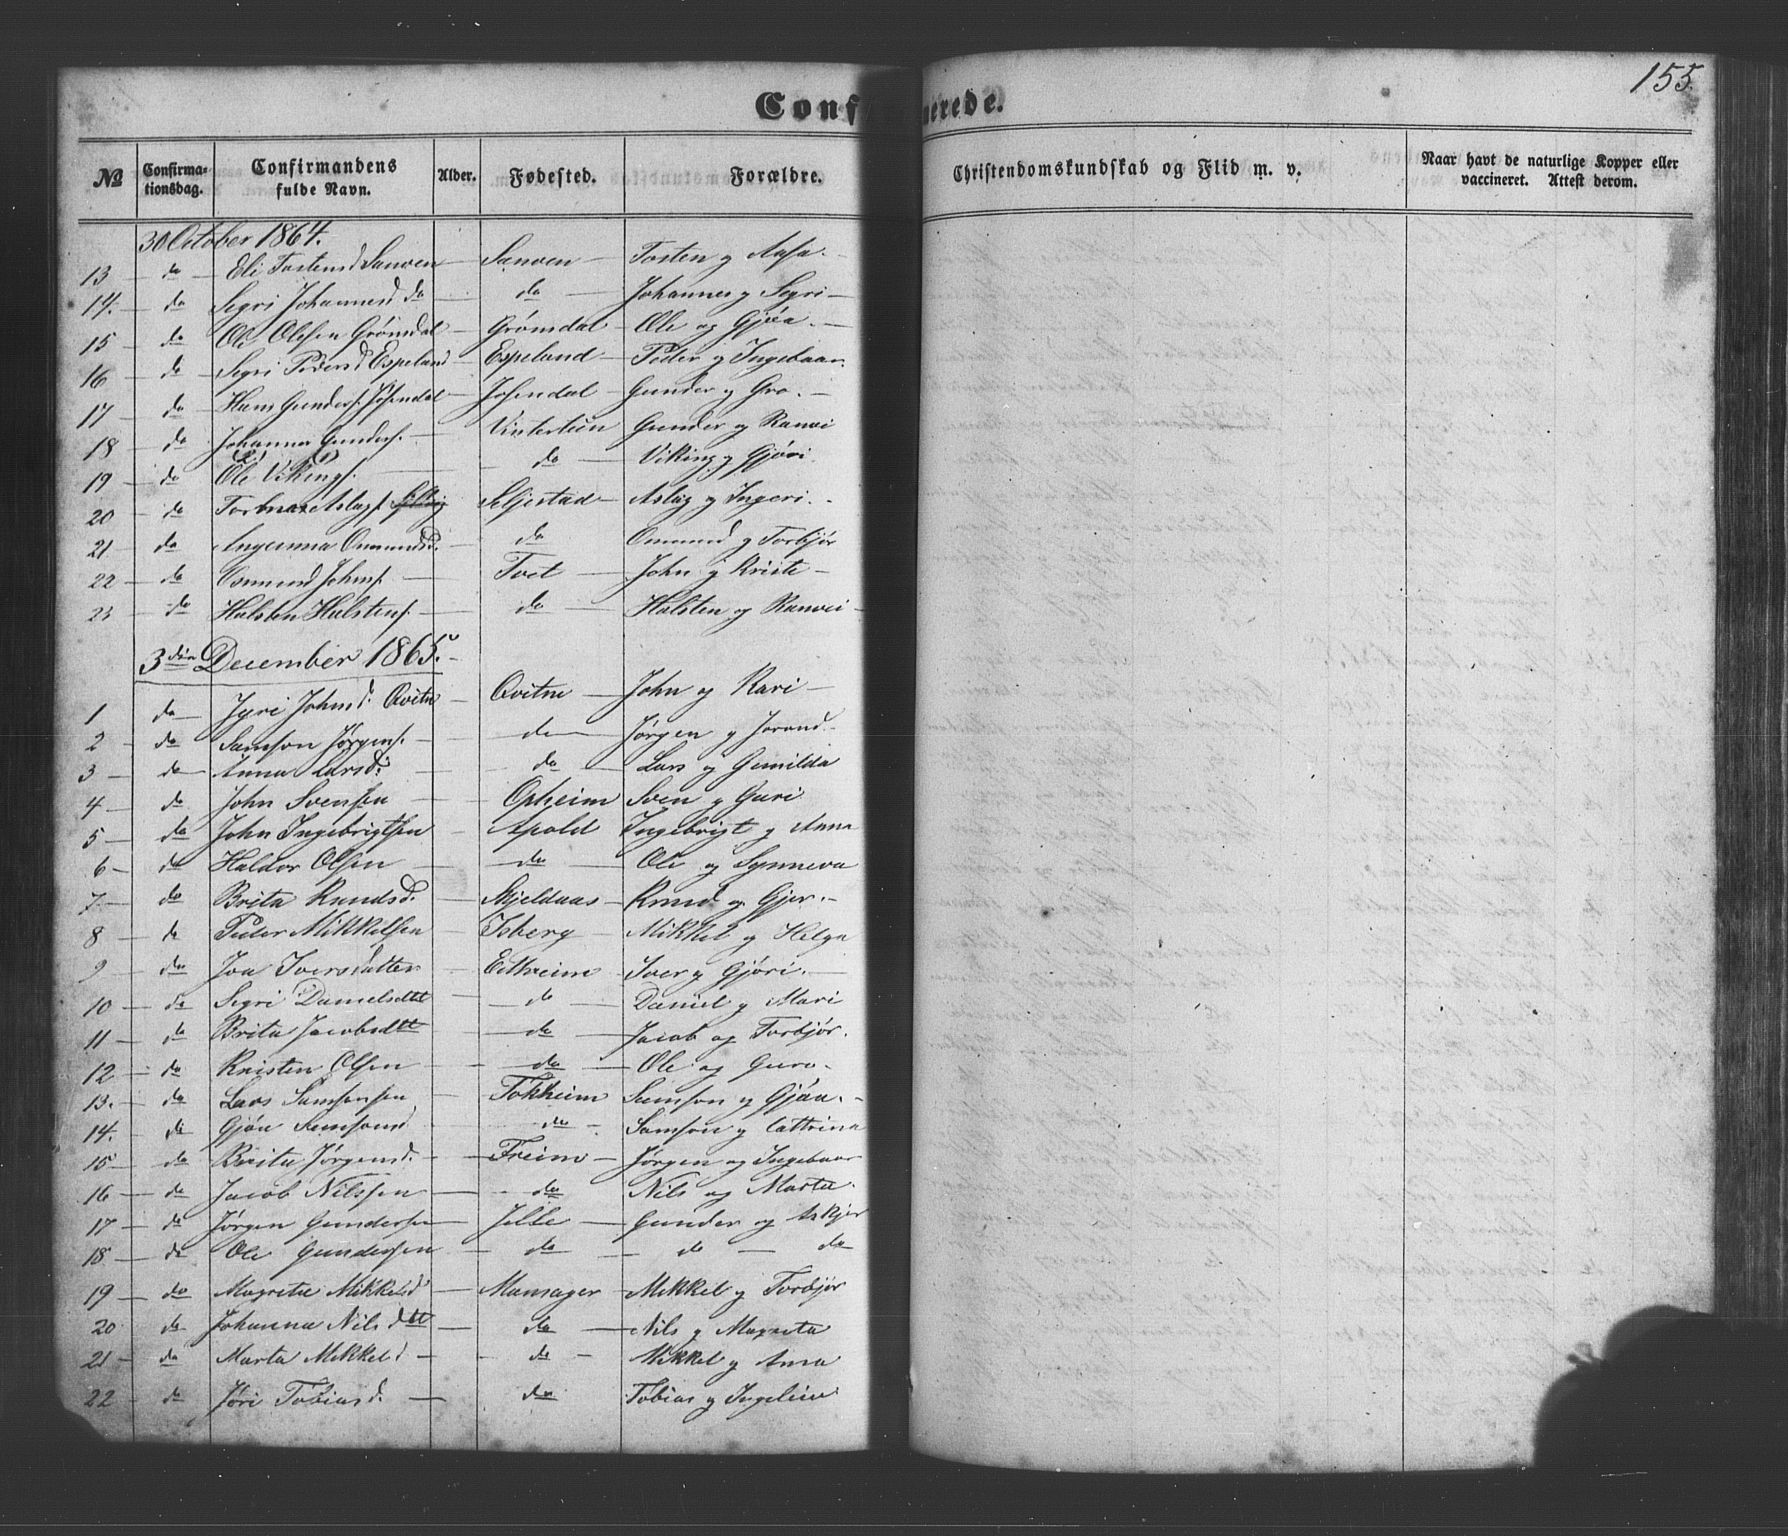 155.
Conf nerede.
№ Confirma-tionsdag. Confirmandens fulde Navn. Alder. Fødested. Forældre. Christendomskundskab og Flid m. v. Naar havt de naturlige Kopper eller vaccineret. Attest derom.
30 October 1864.
13 — do Eli Tostensd Sanven — Sanven — Tosten og Aasa. —
14. — do Segri Johannesd do — do — Johannes og Segri —
15 — do Ole Olsen Grönsdal — Grönsdal — Ole og Gjöa. —
16 — do Segri Pedersd Espeland — Espeland — Peder og Ingebaar.
17 — do Hans Gunders. Josendal — Josendal — Gunder og Gro. —
18 — do Johannes Gunders. — Vintertun Gunder og Ranvei
19 — do Ole Vikings. — do — Viking og Gjöri
20 — do Tormod Aslags. Seljestad — Aslag og Ingeri. —
21 — do Angunna Omundsd. do — Omund og Torbjör
22 — do Osmund Johns. — Tvet — John og Kristi —
23 — do Halsten Halstens. — do — Halsten og Ranvei —
3die December 1865. —
1 do — Jyri Johnsd. Qvitne — Qvitne — John og Kari —
2 — do Samson Jørgens. — do — Jørgen og Jorand. —
3 — do — Anna Larsd. — do — Lars og Gunilda
4 — do John Svensen — Opheim Sven og Guri
5 — do John Ingebrigtsen — Apold Ingebrigt og Anna
6 — do Haldor Olsen — do — Ole og Synneva
7. — do Brita Knudsd. — Skjeldaas — Knud og Gjer. —
8 — do Peder Mikkelsen — Isberg — Mikkel og Helga
9 — do Joa Iversdatter — Eitheim — Iver og Gjöri. —
10 — do Segri Danielsdtt — do — Daniel og Mari
11 — do Brita Jacobsdtt — do — Jacob og Torbjör.
12 — do Kristen Olsen — do — Ole og Guro. —
13. — do Lars Samsonsen — Tokheim Samson og Gjöa. —
14. — do Gjöa Samsonsd — do — Samson og Cathrina
15 — do Brita Jørgensd. — Freim — Jørgen og Ingebaar
16 — do Jacob Nilssen — do Nils og Marta.
17 — do Jørgen Gundersen — Jille — Gunder og Askjer
18 — do Ole Gundersen — do — do — do
19 — do Magreta Mikkelsd — Mansager — Mikkel og Torbjör
20 do Johanna Nilsdtt — do — Nils og Magreta
21 — do Marta Mikkelsd — do — Mikkel og Anna
22 — do Jöri Tobiasd. — do Tobias og Ingelein